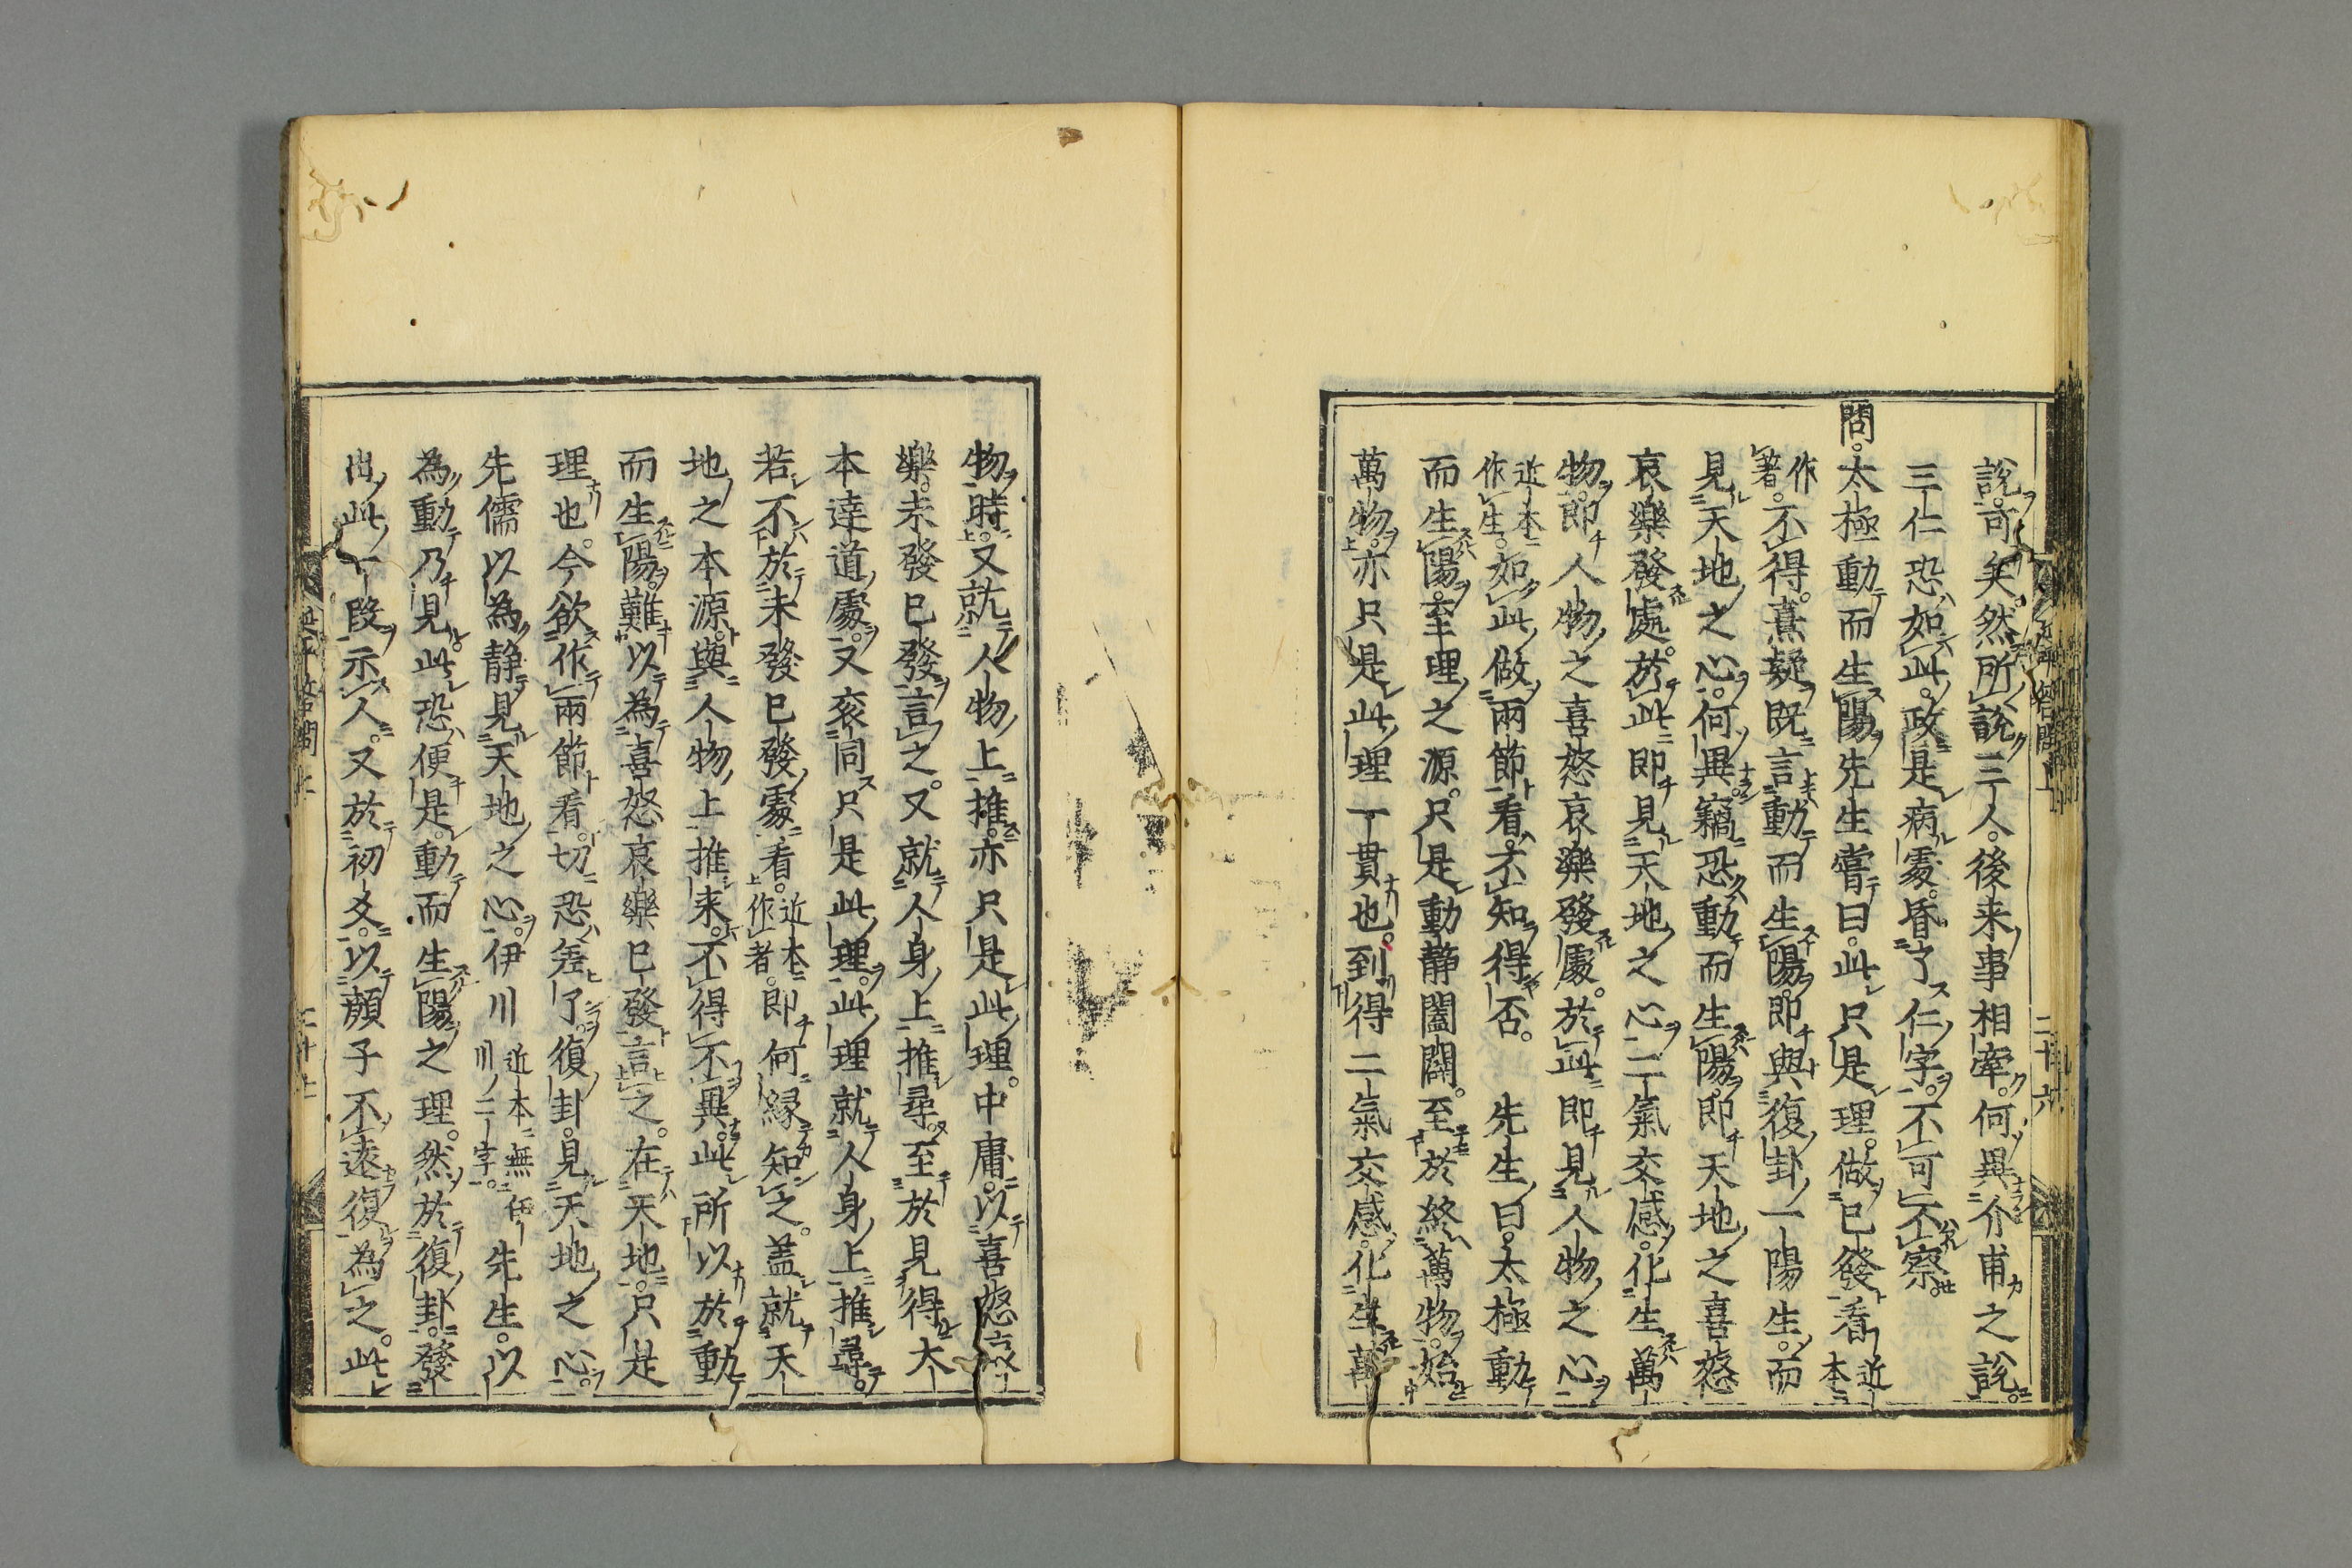 說可矣然所說三人後来事相牽何異介甫之說
三仁恐如此政是病處昏了仁字不可不察
問太極動而生陽先生嘗曰此只是理做已發看近本
作著不得熹疑既言動而生陽即與復卦一陽生而
見天地之心何異竊恐動而生陽即天地之喜怒
哀樂發處於此即見天地之心二氣交感化生萬
物即人物之喜怒哀樂發處於此即見人物之心
近本作生如此做兩節看不知得否　先生曰太極動
而生陽至理之源只是動静闔闢至於終萬物始
萬物亦只是此理一貫也到得二氣交感化生萬
物時又就人物上推亦只是此理中庸以喜怒哀
樂未發已發言之又就人身上推尋至於見得大
本達道處又衮同只是此理此理就人身上推尋
若不於未發已發處看近本作者即何緣知之盖就天
地之本源與人物上推来不得不異此所以於動
而生陽難以為喜怒哀樂已發言之在天地只是
理也今欲作兩節看切恐差了復卦見天地之心
先儒以為静見天地之心伊川近本無伊川二字先生以
為動乃見此恐便是動而生陽之理然於復卦發
出此一段示人又於初爻以顏子不遠復為之此
延平答問上
二十六